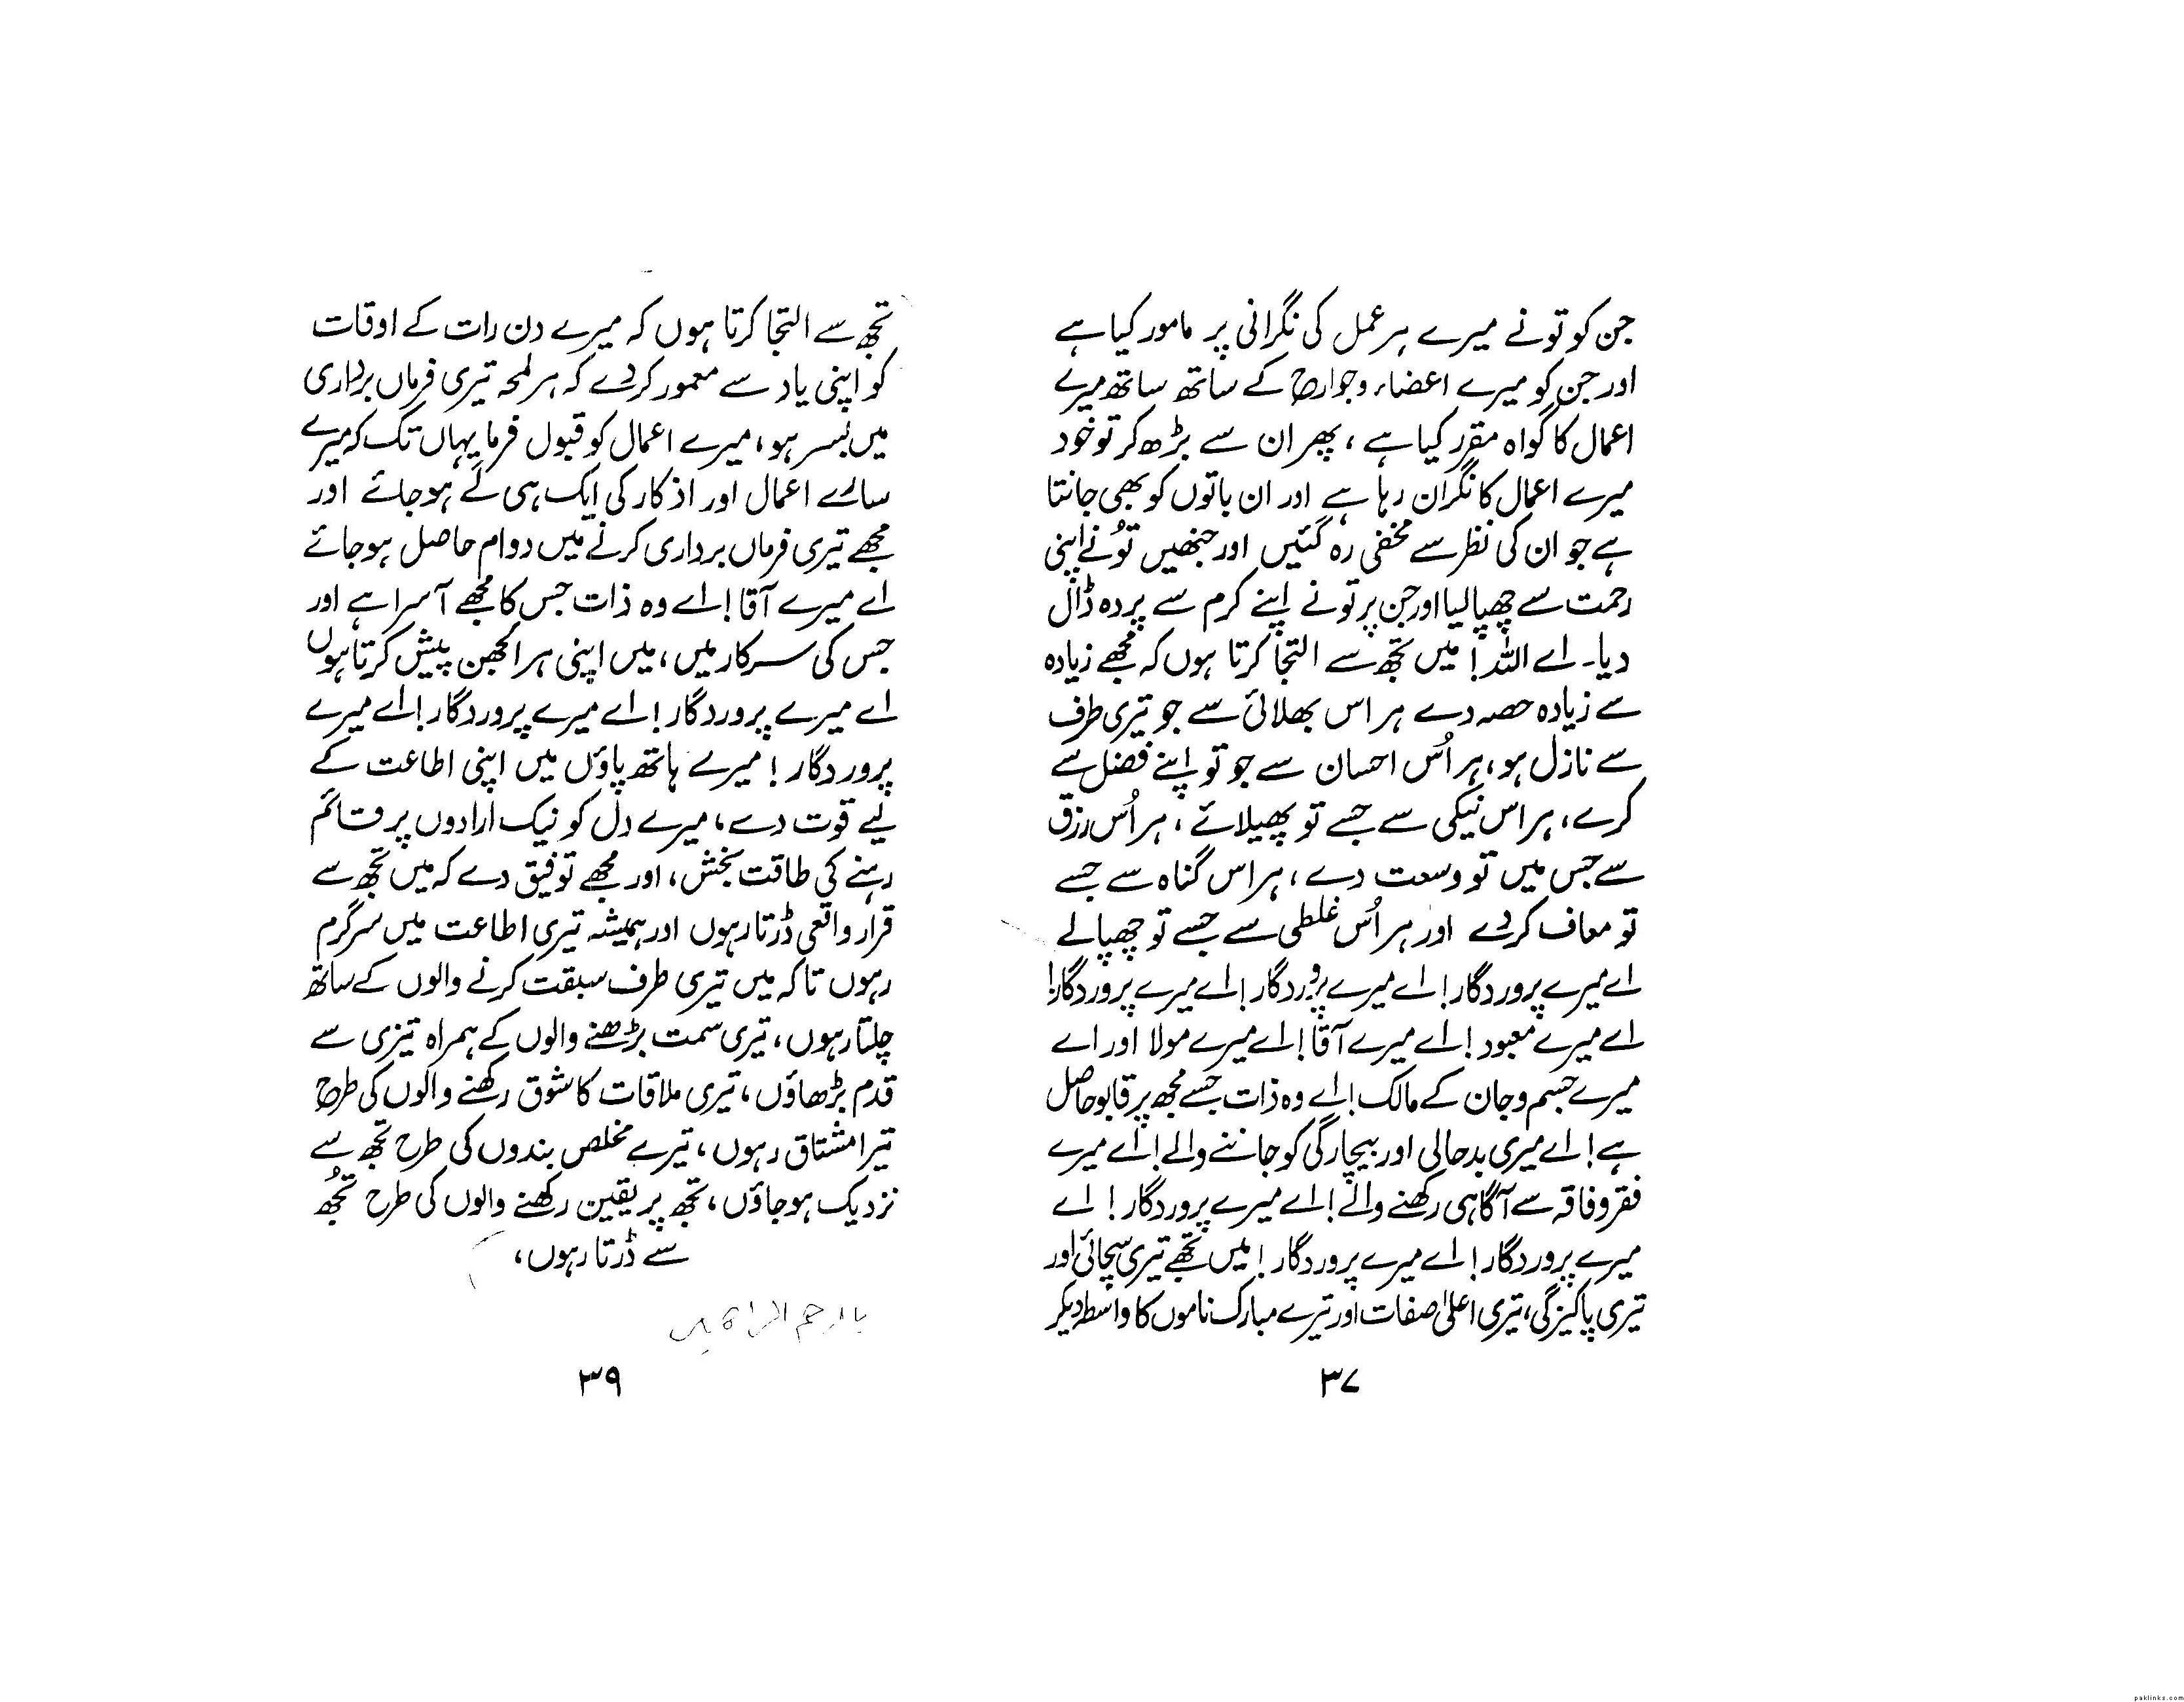 جن کو تونے میرے ہر عمل کی نگرانی پر مامور کیا ہے
اور جن کو میرے اعضاء و جوارح کے ساتھ ساتھ میرے
اعمال کا گواہ مقرر کیا ہے ، پھر ان سے بڑھ کر تو خود
میرے اعمال کا نگران رہا ہے اور ان باتوں کو بھی جانتا
ہے جو ان کی نظر سے مخفی رہ گئیں اور جنھیں تُونے اپنی
رحمت سے چھپالیا اور جن پر تونے اپنے کرم سے پردہ ڈال
دیا۔ اے اللہ! میں تجھ سے التجا کرتا ہوں کہ مجھے زیادہ
سے زیادہ حصہ دے ہر اس بھلائی سے جو تیری طرف
سے نازل ہو، ہر اُس احسان سے جو تو اپنے فضل سے
کرے، ہر اس نیکی سے جسے تو پھیلائے ، ہر اُس رزق
سے جس میں تو وسعت دے ، ہر اس گناہ سے جسے
تو معاف کردے اور ہر اُس غلطی سے جسے تو چھپالے
اے میرے پروردگار! اے میرے پروردگار! اے میرے پروردگار!
اے میرے معبود! اے میرے آقا! اے میرے مولا اور اے
میرے جسم و جان کے مالک! اے وہ ذات جسے مجھ پر قابو حاصل
ہے! اے میری بدحالی اور بیچارگی کو جاننے والے! اے میرے
فقر و فاقہ سے آگاہی رکھنے والے! اے میرے پروردگار! اے
میرے پروردگار! اے میرے پروردگار! میں تجھے تیری سچائی اور
تیری پاکیزگی، تیری اعلیٰ صفات اور تیرے مبارک ناموں کا واسطہ دیکر
۳۷
تجھ سے التجا کرتا ہوں کہ میرے دن رات کے اوقات
کو اپنی یاد سے معمور کردے کہ ہر لمحہ تیری فرماں برداری
میں بسر ہو، میرے اعمال کو قبول فرما یہاں تک کہ میرے
سارے اعمال اور اذکار کی ایک ہی لَے ہوجائے اور
مجھے تیری فرماں برداری کرنے میں دوام حاصل ہوجائے
اے میرے آقا! اے وہ ذات جس کا مجھے آسرا ہے اور
جس کی سرکار میں، میں اپنی ہر الجھن پیش کرتا ہوں
اے میرے پروردگار! اے میرے پروردگار! اے میرے
پروردگار! میرے ہاتھ پاؤں میں اپنی اطاعت کے
لیے قوت دے، میرے دل کو نیک ارادوں پر قائم
رہنے کی طاقت بخش، اور مجھے توفیق دے کہ میں تجھ سے
قرار واقعی ڈرتا رہوں اور ہمیشہ تیری اطاعت میں سرگرم
رہوں تاکہ میں تیری طرف سبقت کرنے والوں کے ساتھ
چلتا رہوں، تیری سمت بڑھنے والوں کے ہمراہ تیزی سے
قدم بڑھاؤں، تیری ملاقات کا شوق رکھنے والوں کی طرح
تیرا مشتاق رہوں، تیرے مخلص بندوں کی طرح تجھ سے
نزدیک ہوجاؤں، تجھ پر یقین رکھنے والوں کی طرح تُجھ
سے ڈرتا رہوں،
۳۹
paklinks.com